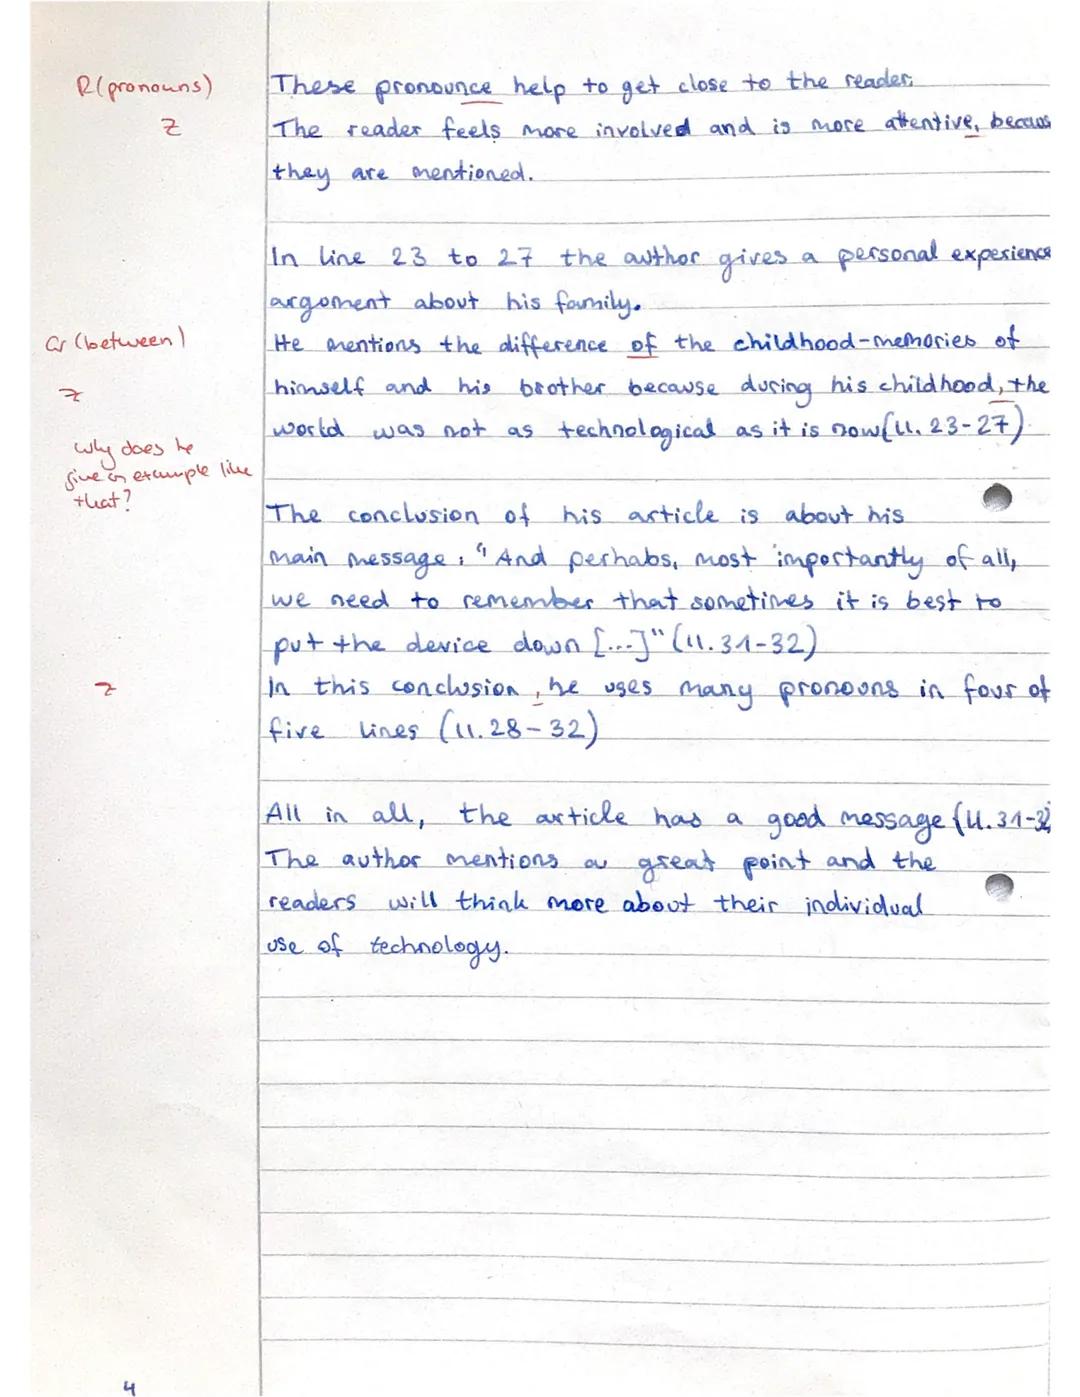 R (pronouns)
These pronounce help to get close to the reader.
Z
The reader feels more involved and is more attentive, becaus
they are mentioned.
In line 23 to 27 the author gives a personal experience
argoment about his family.
Gr (between)
He mentions the difference of the childhood-memories of
Z
himself and his brother because during his childhood, the
world was not as technological as it is now (ll. 23-27)
why does he
give an example like
that?
The conclusion of his article is about his
main message: "And perhabs, most importantly of all,
we need to remember that sometimes it is best to
put the device down [...]" (ll. 31-32)
Z
In this conclusion, he uses many pronouns in four of
five lines (ll. 28-32)
All in all, the article has a good message (ll. 31-32)
The author mentions a great point and the
readers will think more about their individual
use of technology.
4